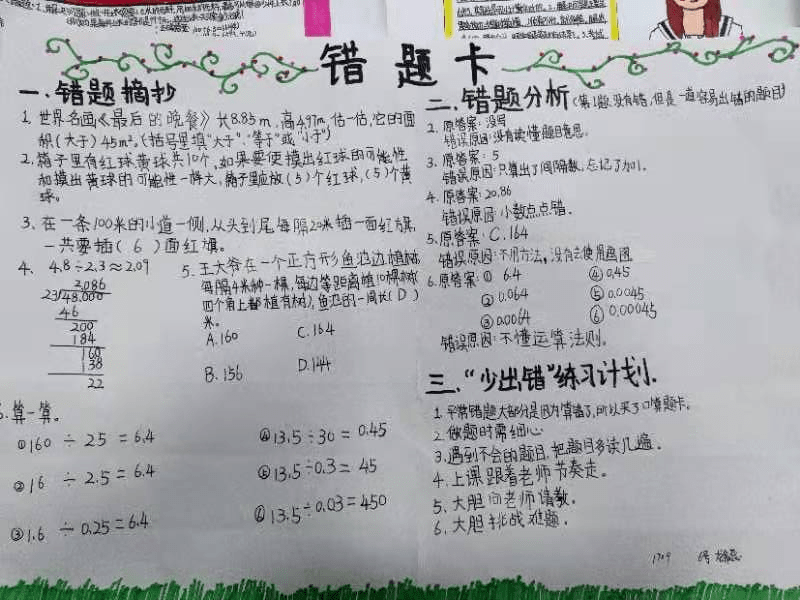 错题卡
一、错题摘抄
1. 世界名画《最后的晚餐》长8.85m,高4.97m,估一估,它的面
积(大于)45m²。(括号里填"大于"、"等于"或"小于")
2. 箱子里有红球黄球共10个,如果要使摸出红球的可能性
和摸出黄球的可能性一样大,箱子里应放(5)个红球,(5)个黄
球。
3. 在一条100米的小道一侧,从头到尾每隔20米插一面红旗,
一共要插(6)面红旗。
4. 4.8÷2.3≈2.09
2.086
23)48.000
46
200
184
160
138
22
5. 王大爷在一个正方形鱼池边植树
每隔4米种一棵,每边等距离植10棵树
四个角上都植有树),鱼池的一周长(D)
米。
A.160 C.164
B.156 D.144
算一算。
①160÷25=6.4
②16÷2.5=6.4
③1.6÷0.25=6.4
④13.5÷30=0.45
⑤13.5÷0.3=45
⑥13.5÷0.03=450
二、错题分析(第1题没有错,但是一道容易出错的题目)
2. 原答案:没写
错误原因:没有读懂题目意思。
3. 原答案:5
错误原因:只算出了间隔数,忘记了加1。
4. 原答案:20.86
错误原因:小数点点错。
5. 原答案:C.164
错误原因:不用方法,没有去使用画图
6. 原答案:① 6.4 ④ 0.45
② 0.064 ⑤ 0.0045
③ 0.0064 ⑥ 0.00045
错误原因:不懂运算法则。
三."少出错"练习计划.
1. 平常错题大部分是因为算错了,所以买了口算题卡。
2. 做题时需细心
3. 遇到不会的题目,把题目多读几遍。
4. 上课跟着老师节奏走。
5. 大胆向老师请教。
6. 大胆挑战难题。
1709